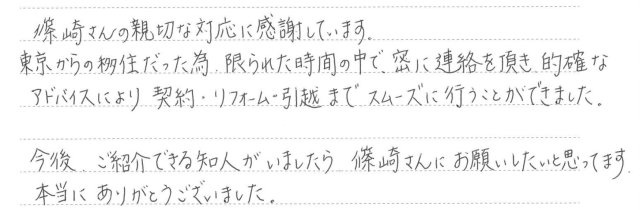 篠崎さんの親切な対応に感謝しています。
東京からの移住だった為、限られた時間の中で、密に連絡を頂き、的確な
アドバイスにより 契約・リフォーム・引越まで スムーズに行うことができました。
今後、ご紹介できる知人がいましたら、篠崎さんにお願いしたいと思ってます。
本当に ありがとうございました。